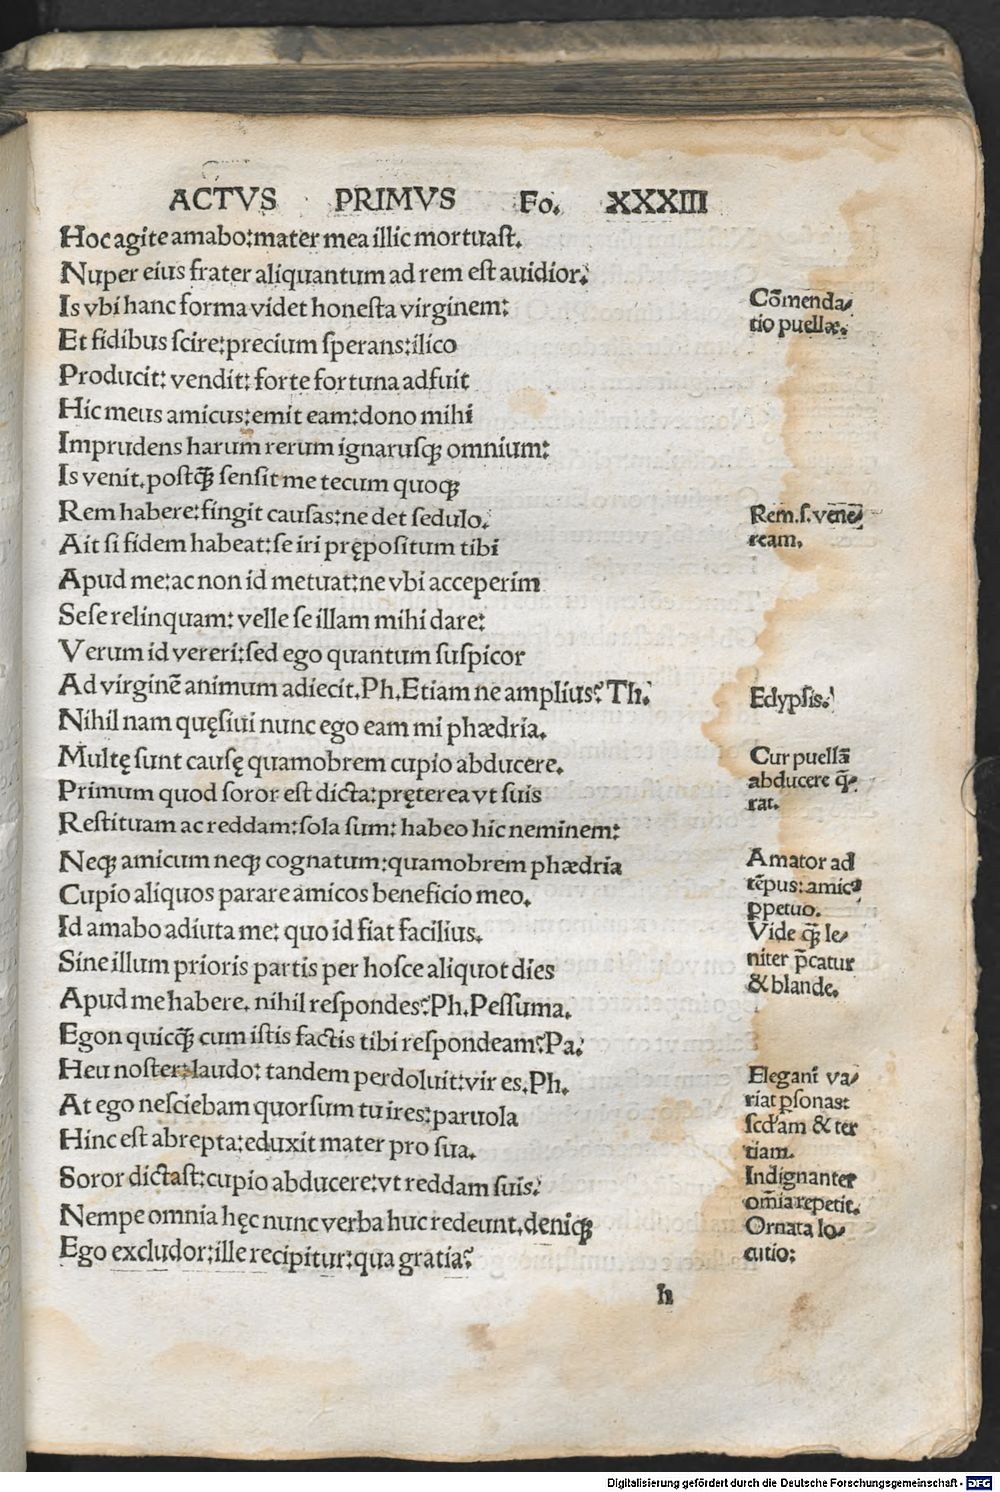 ACTVS PRIMVS Fo. XXXIII
Hoc agite amabo:mater mea illic mortuaſt.
Nuper eius frater aliquantum ad rem eſt auidior.
Is vbi hanc forma videt honeſta virginem:
Et fidibus ſcire:precium ſperans:ilico
Producit: vendit: forte fortuna adfuit
Hic meus amicus:emit eam:dono mihi
Imprudens harum rerum ignaruſqꝫ omnium:
Is venit.poſtꝙ̃ ſenſit me tecum quoqꝫ
Rem habere:fingit cauſas:ne det ſedulo.
Ait ſi fidem habeat:ſe iri prępoſitum tibi
Apud me:ac non id metuat:ne vbi acceperim
Seſe relinquam: velle ſe illam mihi dare:
Verum id vereri:ſed ego quantum ſuſpicor
Ad virginē animum adiecit.Ph.Etiam ne amplius? Th.
Nihil nam quęſiui nunc ego eam mi phædria.
Multę ſunt cauſę quamobrem cupio abducere.
Primum quod ſoror eſt dicta:pręterea vt ſuis
Reſtituam ac reddam:ſola ſum: habeo hic neminem:
Neqꝫ amicum neqꝫ cognatum:quamobrem phædria
Cupio aliquos parare amicos beneficio meo.
Id amabo adiuta me: quo id fiat facilius.
Sine illum prioris partis per hoſce aliquot dies
Apud me habere. nihil reſpondes?Ph.Peſſuma.
Egon quicꝙ̃ cum iſtis factis tibi reſpondeam?Pa.
Heu noſter:laudo: tandem perdoluit:vir es.Ph.
At ego neſciebam quorſum tu ires:paruola
Hinc eſt abrepta:eduxit mater pro ſua.
Soror dictaſt:cupio abducere:vt reddam ſuis.
Nempe omnia hęc nunc verba huc redeunt.deniqꝫ
Ego excludor:ille recipitur:qua gratia?
h
Cōmenda⸗
tio puellæ.
Rem.ſ.vene⸗
ream.
Eclypſis.
Cur puellā
abducere q̄⸗
rat.
Amator ad
tēpus:amicꝰ
ꝑpetuo.
Vide ꝙ̃ le⸗
niter p̄catur
& blande.
Eleganī va⸗
riat ꝑſonas:
ſcd'am & ter
tiam.
Indignanter
om̄ia repetit.
Ornata lo⸗
cutio:
Digitalisierung gefördert durch die Deutsche Forschungsgemeinschaft - DFG